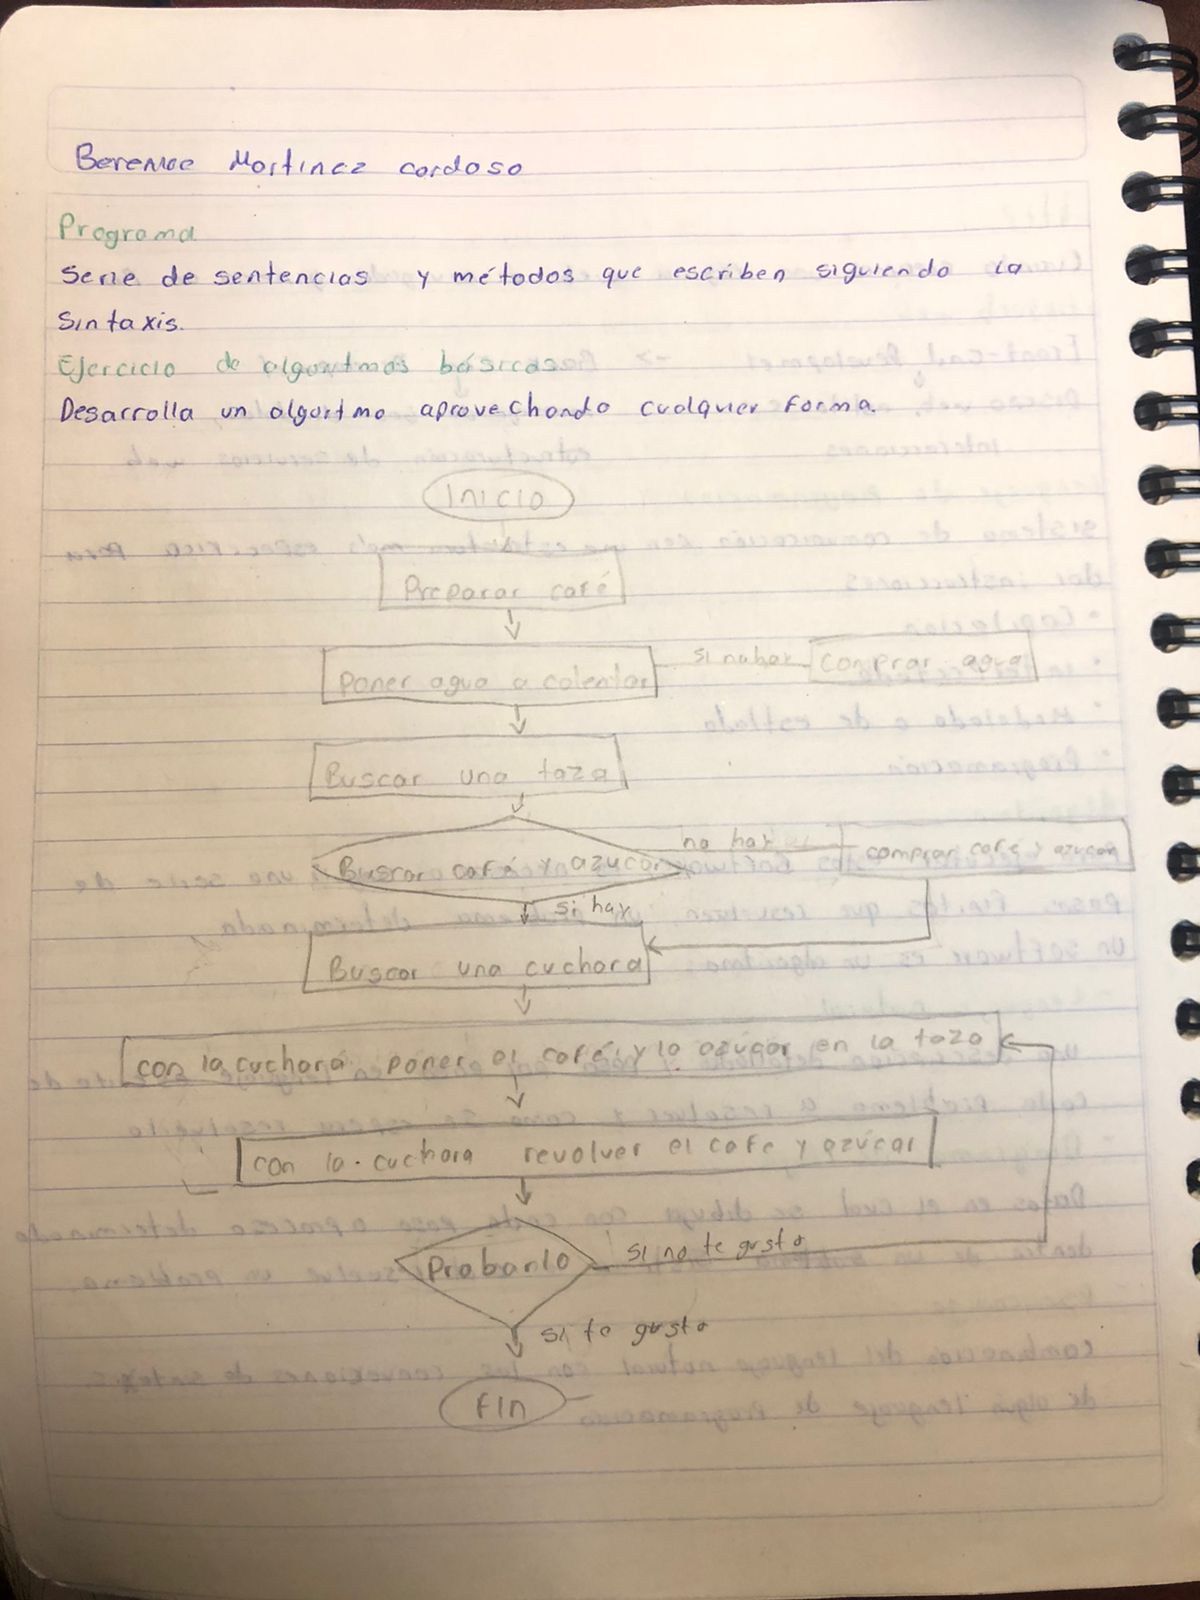 Berenice Martinez Cardoso
Programa
Serie de sentencias y métodos que escriben siguiendo la
sintaxis.
Ejercicio de algoritmos básicos
Desarrolla un algoritmo aprovechando cualquier forma.
Inicio
Preparar café
Poner agua a calentar
si no hay
comprar agua
Buscar una taza
Buscar café y azucar
no hay
comprar café y azucar
si hay
Buscar una cuchara
con la cuchara poner el café y la azucar en la taza
con la cuchara revolver el cafe y azúcar
Probarlo
si no te gusto
si te gusto
Fin